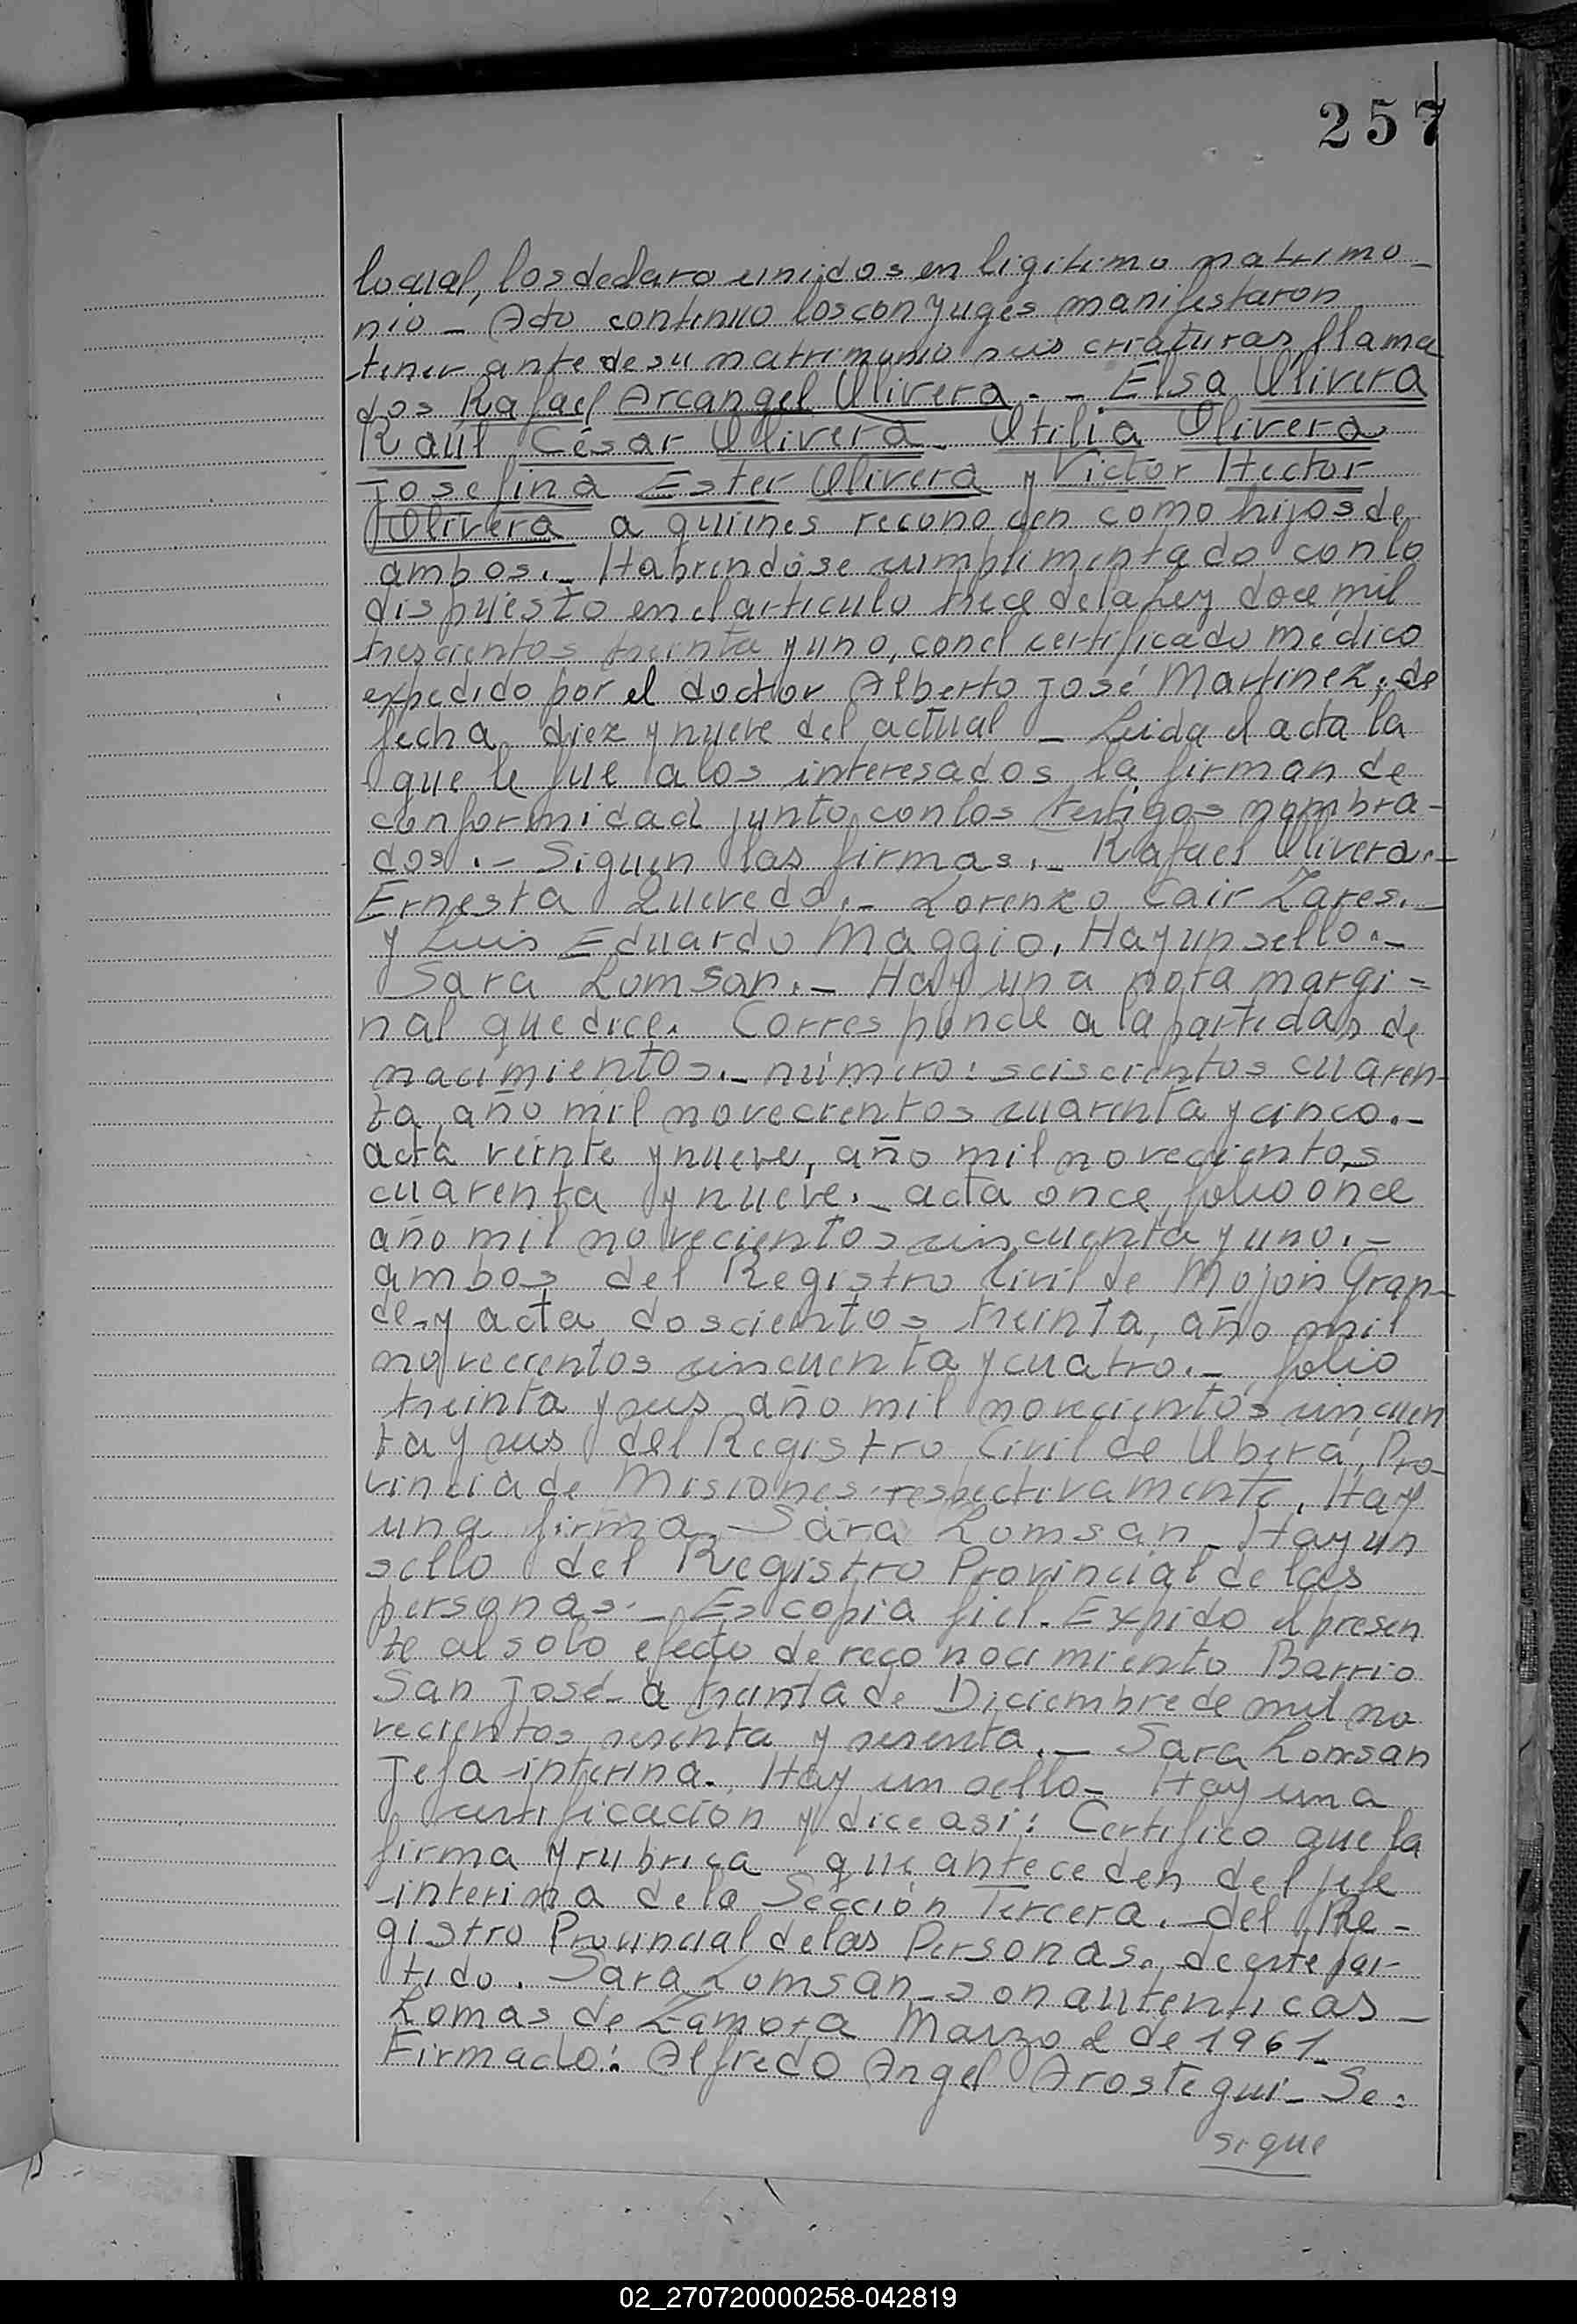 257
lo cual, los declaro unidos en ligitimo matrimo-
nio - Acto continuo los conyuges manifestaron
tener ante de su matrimonio seis criaturas llama
dos Rafael Arcangel Olivera. - Elsa Olivera
Raúl César Olivera - Otilia Olivera
Josefina Ester Olivera y Victor Hector
Olivera a quienes reconocen como hijos de
ambos. - Habiendose cumplimentado con lo
dispuesto en el articulo trece de la Ley doce mil
trescientos treinta y uno, con el certificado médico
expedido por el doctor Alberto José Martinez, de
fecha diez y nueve del actual - Leida el acta la
que le fue a los interesados la firman de
conformidad junto con los testigos nombra-
dos. - Siguen las firmas. - Rafael Olivera. -
Ernesta Quevedo. - Lorenzo Cair Zares. -
y Luis Eduardo Maggio. Hay un sello. -
Sara Lomsan. - Hay una nota margi-
nal que dice. Corresponde a la partidas de
nacimientos. - número: seiscientos cuaren-
ta, año mil novecientos cuarenta y cinco. -
acta veinte y nueve, año mil novecientos
cuarenta y nueve. - acta once, folio once
año mil novecientos cincuenta y uno. -
ambos del Registro Civil de Mojon Gran-
de - y acta doscientos treinta, año mil
novecientos cincuenta y cuatro. - folio
treinta y seis año mil novecientos cincuen
ta y seis del Registro Civil de Oberá, Pro-
vincia de Misiones. respectivamente. Hay
una firma - Sara Lomsan - Hay un
sello del Registro Provincial de las
personas. - Es copia fiel. Expido el presen
te al solo efecto de reconocimiento Barrio
San José - a treinta de Diciembre de mil no
vecientos sesenta y sesenta. - Sara Lomsan
Jefa interina. Hay un sello - Hay una
certificación y dice asi: Certifico que la
firma y rubrica que anteceden del jefe
interina de la Sección Tercera. - del Re-
gistro Provincial de las Personas. de este par-
tido. Sara Lomsan - son autenticas -
Lomas de Zamora Marzo 2 de 1961 -
Firmado: Alfredo Angel Arostegui - Se:
sigue
02_270720000258-042819